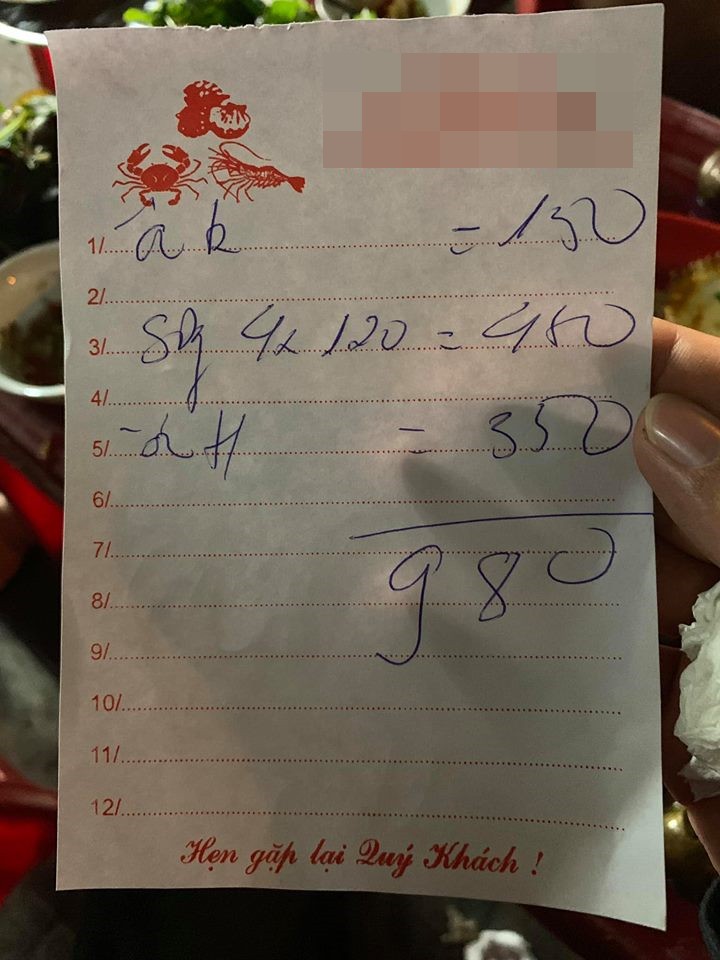 1/ ốc k = 150
2/
3/ SDg 4x 120 = 480
4/
5/ H = 350
6/
7/
980
8/
9/
10/
11/
12/
Hẹn gặp lại Quý Khách !